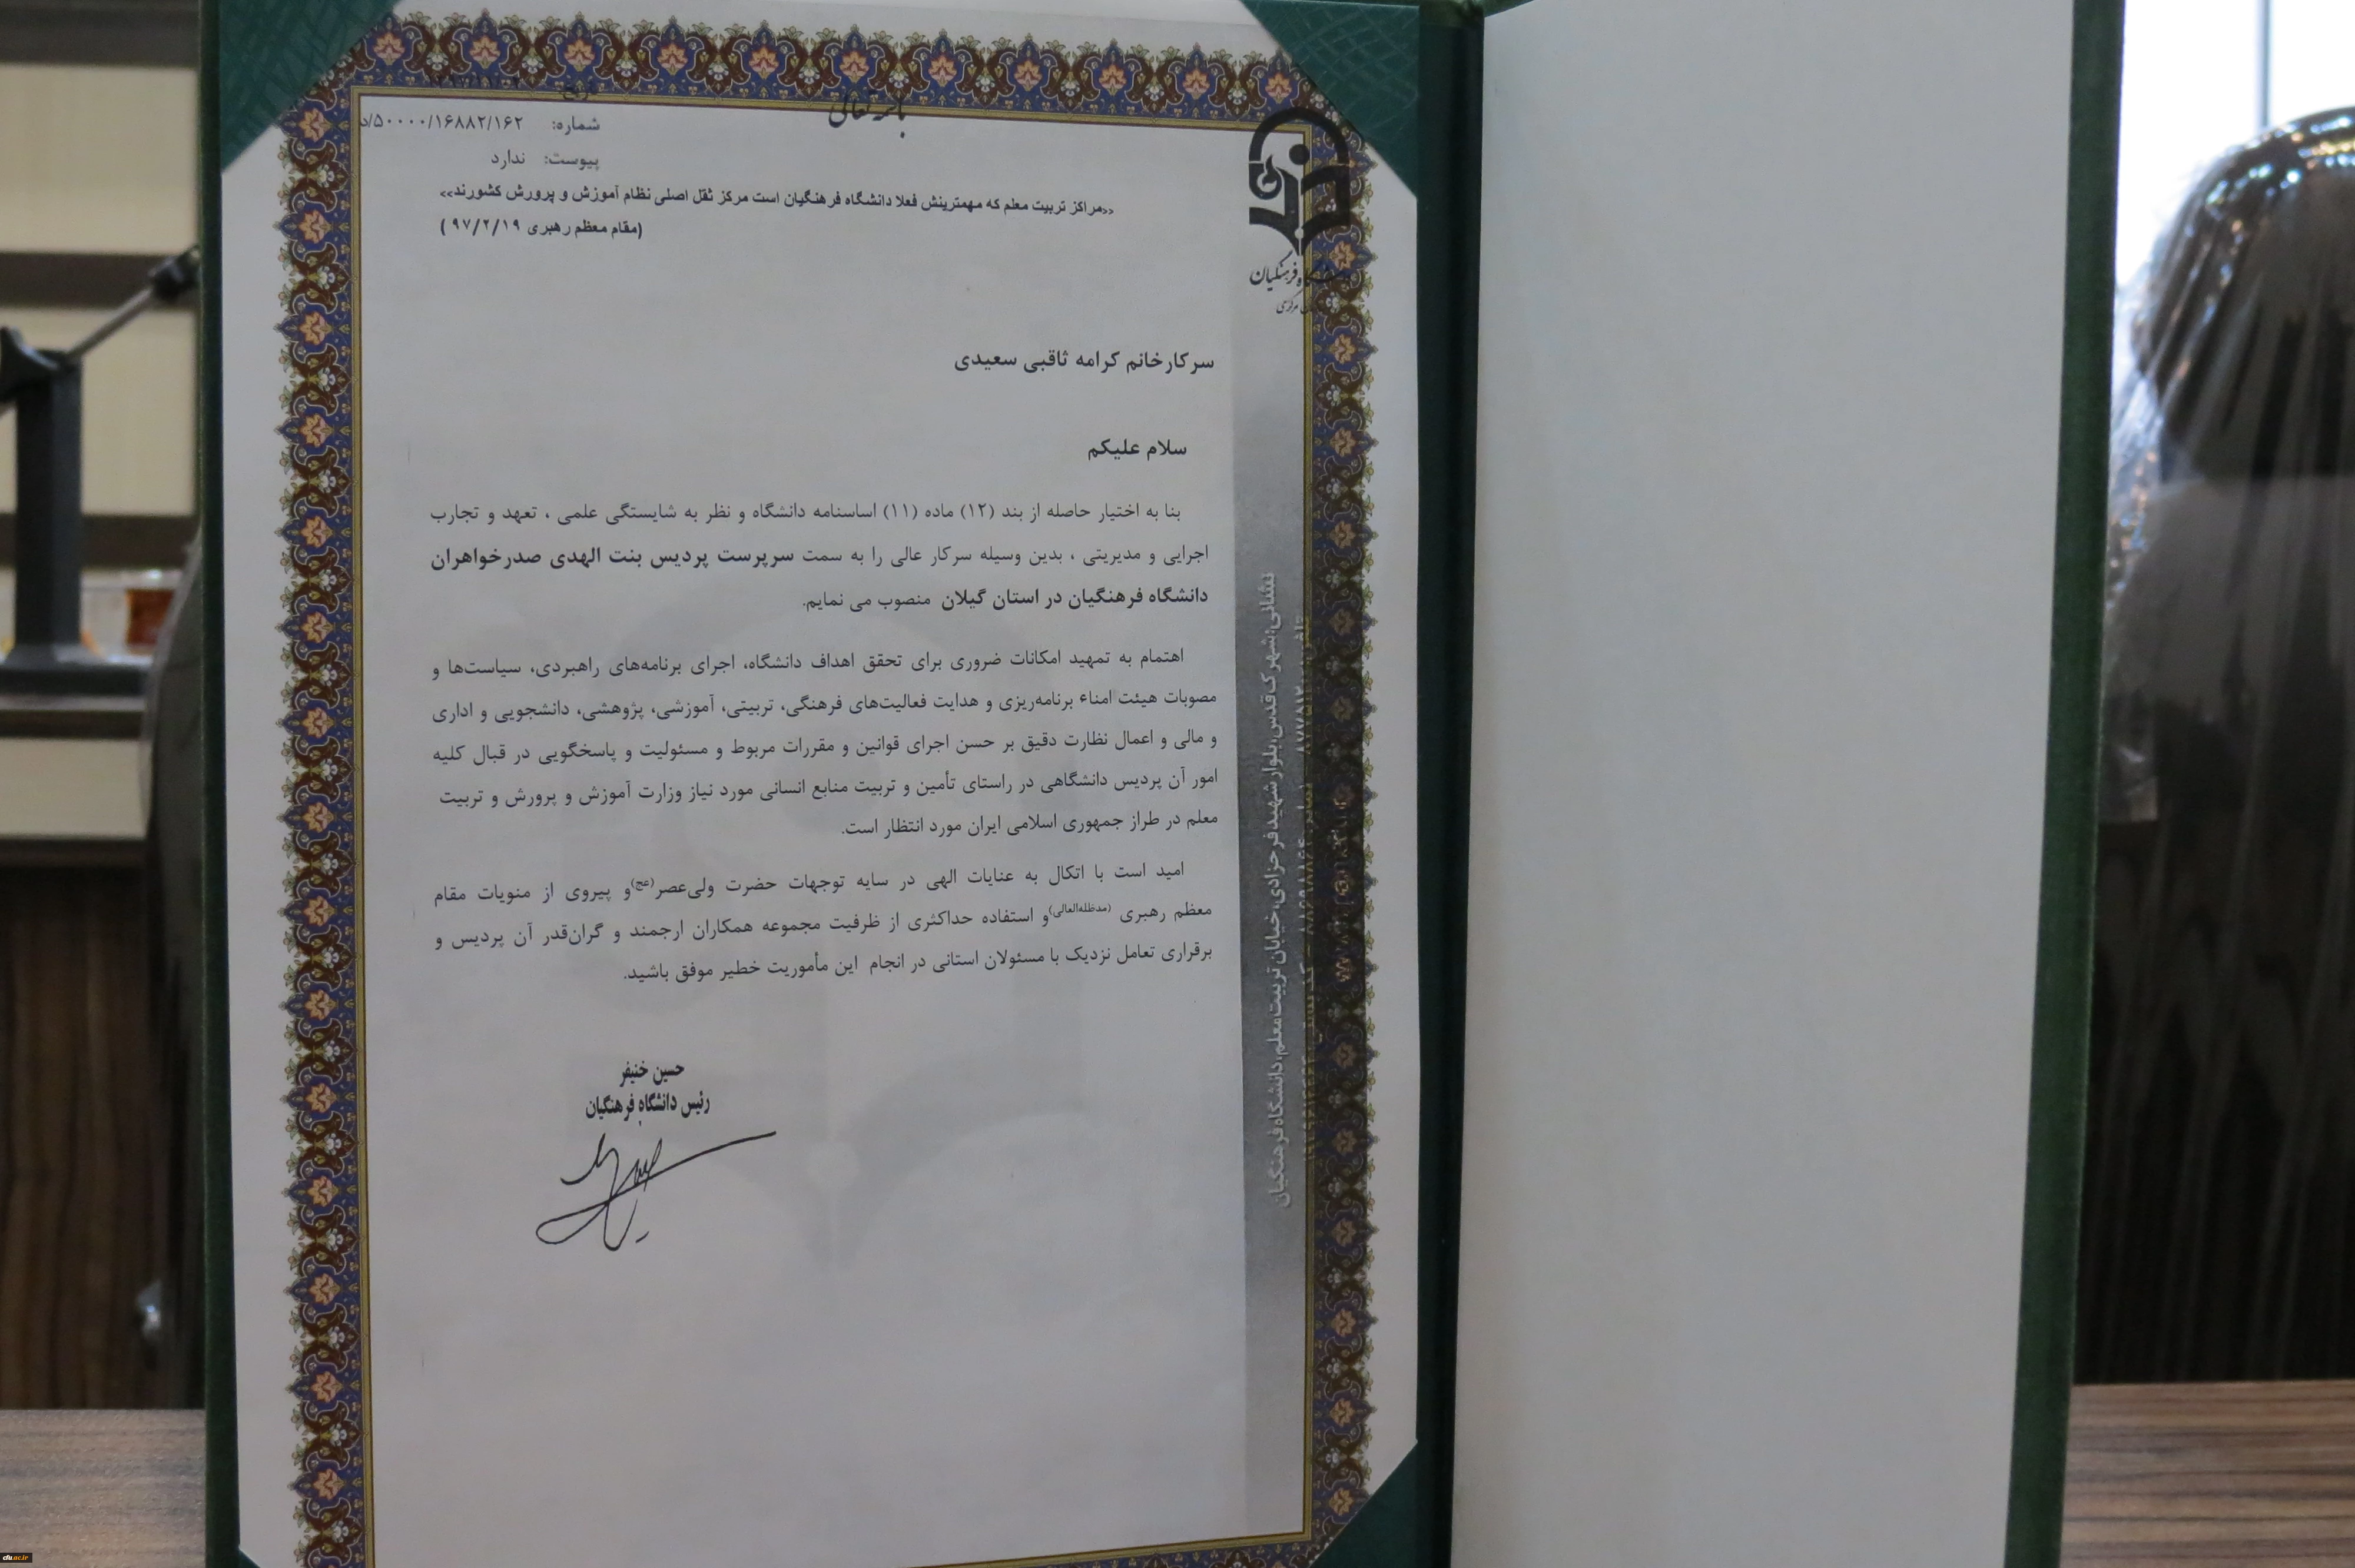 باسمه تعالی
شماره: ۵۰۰۰۰/۱۶۸۸۲/۱۶۲/د
پیوست: ندارد
<<مراکز تربیت معلم که مهمترینش فعلا دانشگاه فرهنگیان است مرکز ثقل اصلی نظام آموزش و پرورش کشورند>>
(مقام معظم رهبری ۹۷/۲/۱۹ )
فرهنگیان
سرکارخانم کرامه ثاقبی سعیدی
سلام علیکم
بنا به اختیار حاصله از بند (۱۲) ماده (۱۱) اساسنامه دانشگاه و نظر به شایستگی علمی ، تعهد و تجارب
اجرایی و مدیریتی ، بدین وسیله سرکار عالی را به سمت سرپرست پردیس بنت الهدی صدرخواهران
دانشگاه فرهنگیان در استان گیلان منصوب می نمایم.
اهتمام به تمهید امکانات ضروری برای تحقق اهداف دانشگاه، اجرای برنامه‌های راهبردی، سیاست‌ها و
مصوبات هیئت امناء برنامه‌ریزی و هدایت فعالیت‌های فرهنگی، تربیتی، آموزشی، پژوهشی، دانشجویی و اداری
و مالی و اعمال نظارت دقیق بر حسن اجرای قوانین و مقررات مربوط و مسئولیت و پاسخگویی در قبال کلیه
امور آن پردیس دانشگاهی در راستای تأمین و تربیت منابع انسانی مورد نیاز وزارت آموزش و پرورش و تربیت
معلم در طراز جمهوری اسلامی ایران مورد انتظار است.
امید است با اتکال به عنایات الهی در سایه توجهات حضرت ولی‌عصر(عج)و پیروی از منویات مقام
معظم رهبری (مدظله‌العالی)و استفاده حداکثری از ظرفیت مجموعه همکاران ارجمند و گران‌قدر آن پردیس و
برقراری تعامل نزدیک با مسئولان استانی در انجام این مأموریت خطیر موفق باشید.
حسین خنیفر
رئیس دانشگاه فرهنگیان
نشانی:شهرک‌قدس،بلوار شهیدفرحزادی،خیابان تربیت‌معلم،دانشگاه‌فرهنگیان
cfu.ac.ir